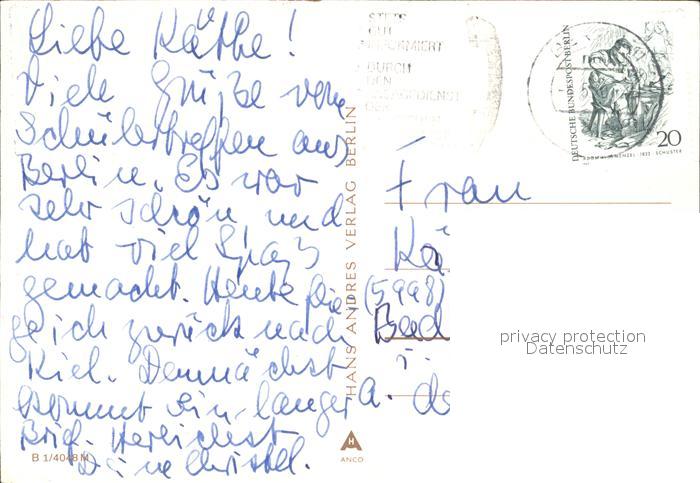 Liebe Käthe!
Viele Grüße vom
Schülertreffen aus
Berlin. Es war
sehr schön und
hat viel Spaß
gemacht. Heute flie
ge ich zurück nach
Kiel. Demnächst
kommt ein langer
Brief. Herzlichst
Deine Christel.
B 1/4048 M
HANS ANDRES VERLAG BERLIN
H
A
ANCO
STETS
GUT
INFORMIERT
DURCH
DEN
DIENST
DEUTSCHE BUNDESPOST BERLIN
20
MENZEL · SCHUSTER
Frau
Kä
(5998)
Bad
i.
a. d
privacy protection
Datenschutz